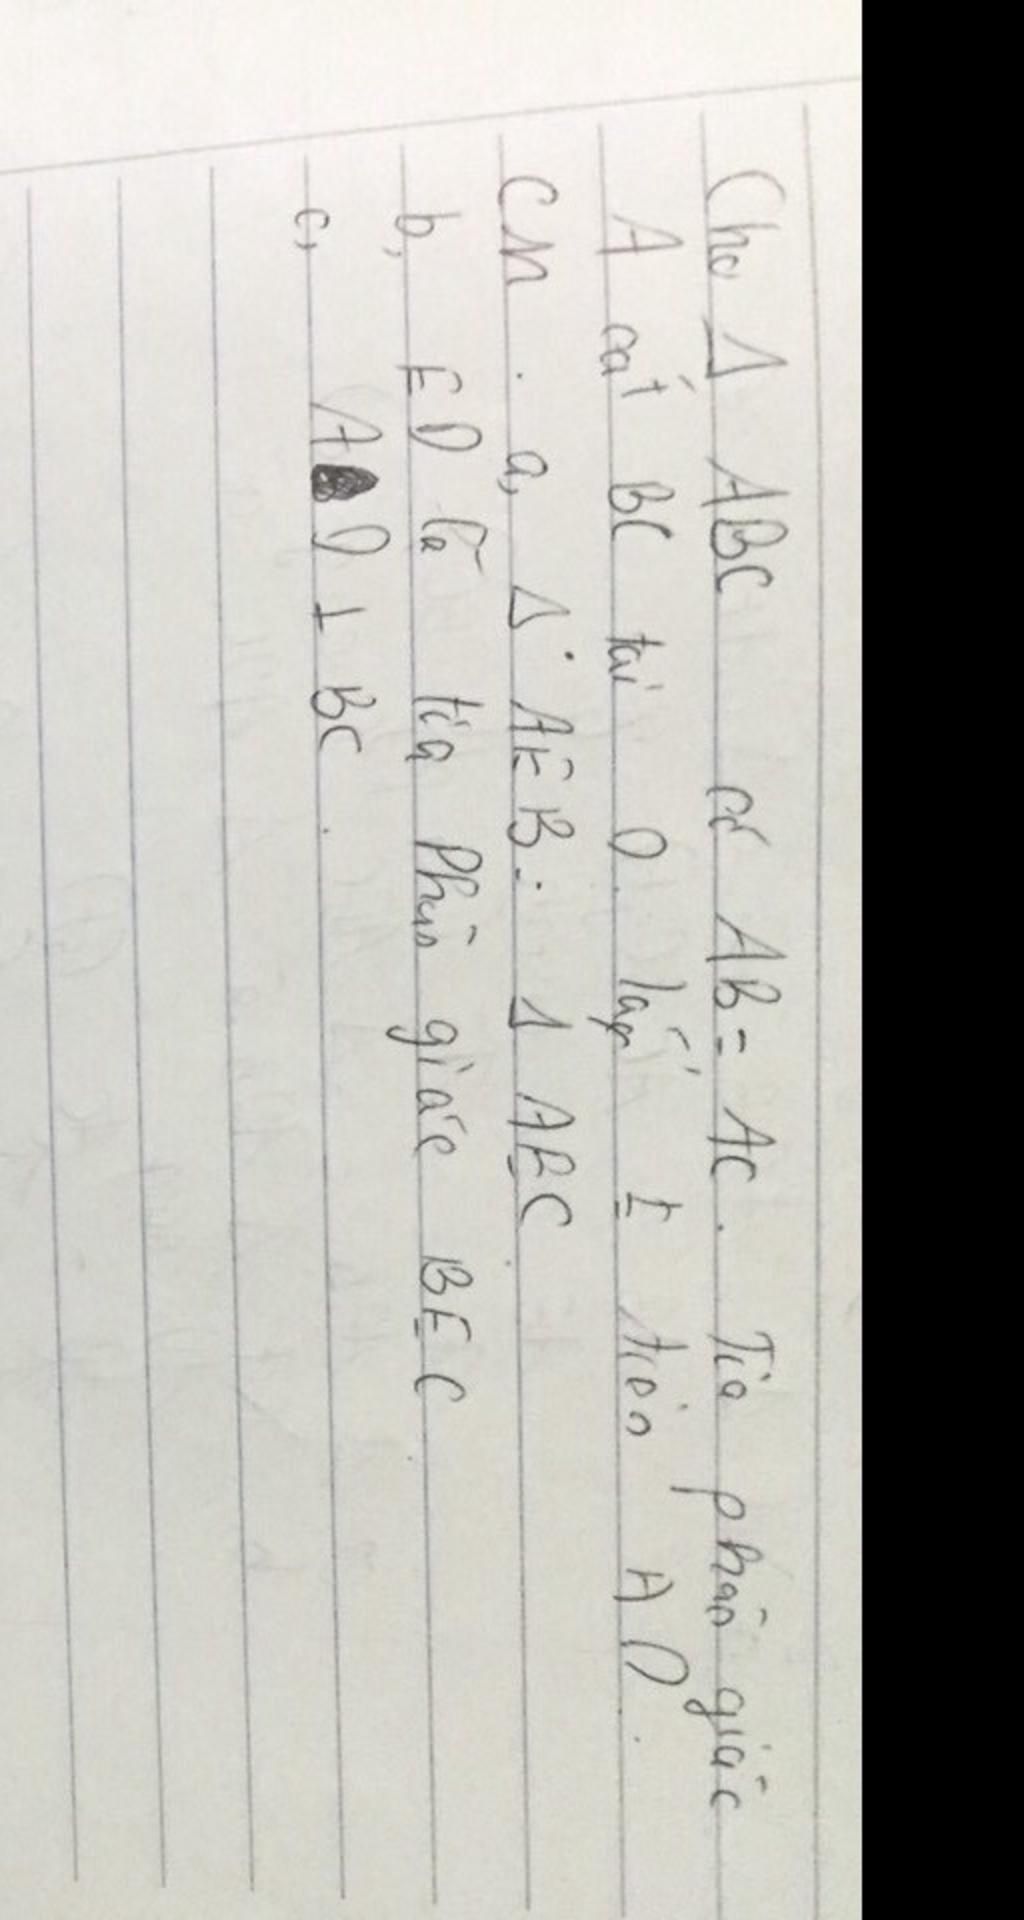 Cho Δ ABC có AB = AC. Tia phân giác
A cắt BC tại D. lấy E trên AD.
CM. a, Δ AEB = Δ AEC
b, ED là tia Phân giác BEC
c, AD ⊥ BC.